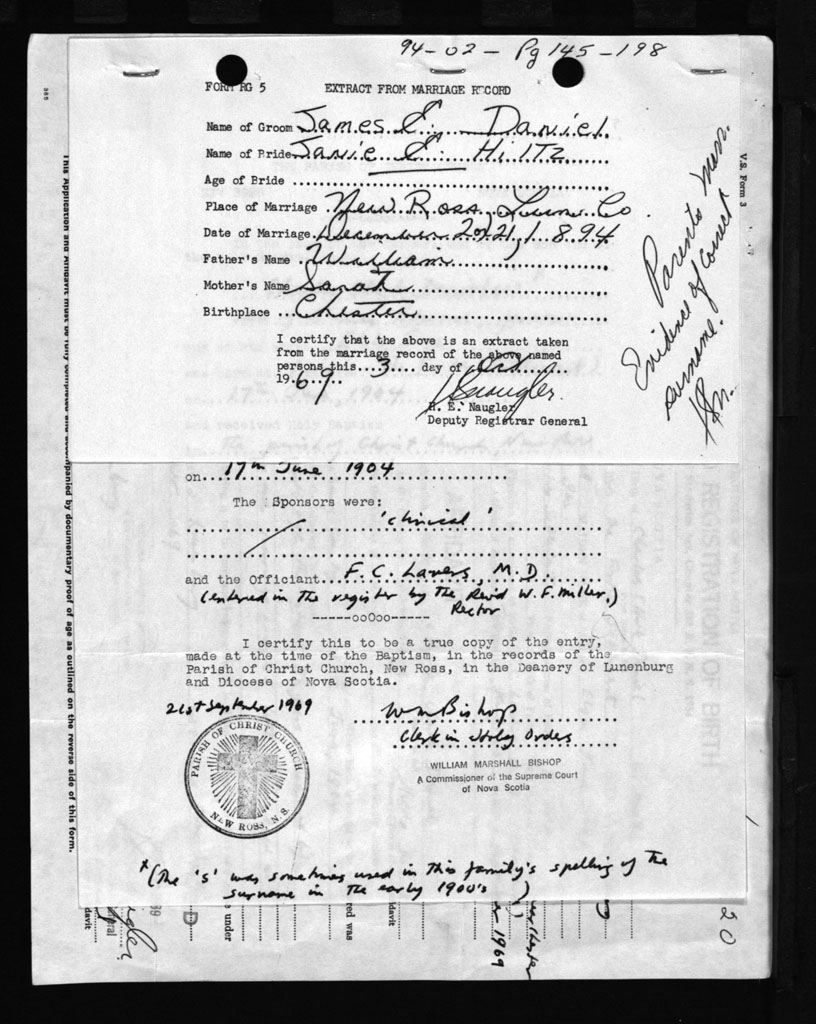 94-02 - Pg 145-198
FORM RG 5 EXTRACT FROM MARRIAGE RECORD
Name of Groom James E. Daniel
Name of Bride Janie E. Hiltz
Age of Bride
Place of Marriage New Ross, Lun. Co
Date of Marriage December 20/21, 1894
Father's Name William
Mother's Name Sarah
Birthplace Chester
I certify that the above is an extract taken
from the marriage record of the above named
persons this 3 day of Oct
1969
R. E. Naugler
Deputy Registrar General
Parents Marr.
Evidence of Correct
surname.
V.S. Form 3
This Application and Affidavit must be fully completed and accompanied by documentary proof of age as outlined on the reverse side of this form.
on 17th June 1904
The Sponsors were:
'clinical'
and the Officiant F. C. Lavers, M.D.
(entered in the register by the Rev'd W. F. Miller,)
Rector
------ooOoo-----
I certify this to be a true copy of the entry,
made at the time of the Baptism, in the records of the
Parish of Christ Church, New Ross, in the Deanery of Lunenburg
and Diocese of Nova Scotia.
21st September 1969
Wm Bishop
Clerk in Holy Orders
WILLIAM MARSHALL BISHOP
A Commissioner of the Supreme Court
of Nova Scotia
PARISH OF CHRIST CHURCH
NEW ROSS, N.S.
*(The 's' was sometimes used in this family's spelling of the
surname in the early 1900's)
REGISTRATION OF BIRTH
s under
red was
davit
1969
20